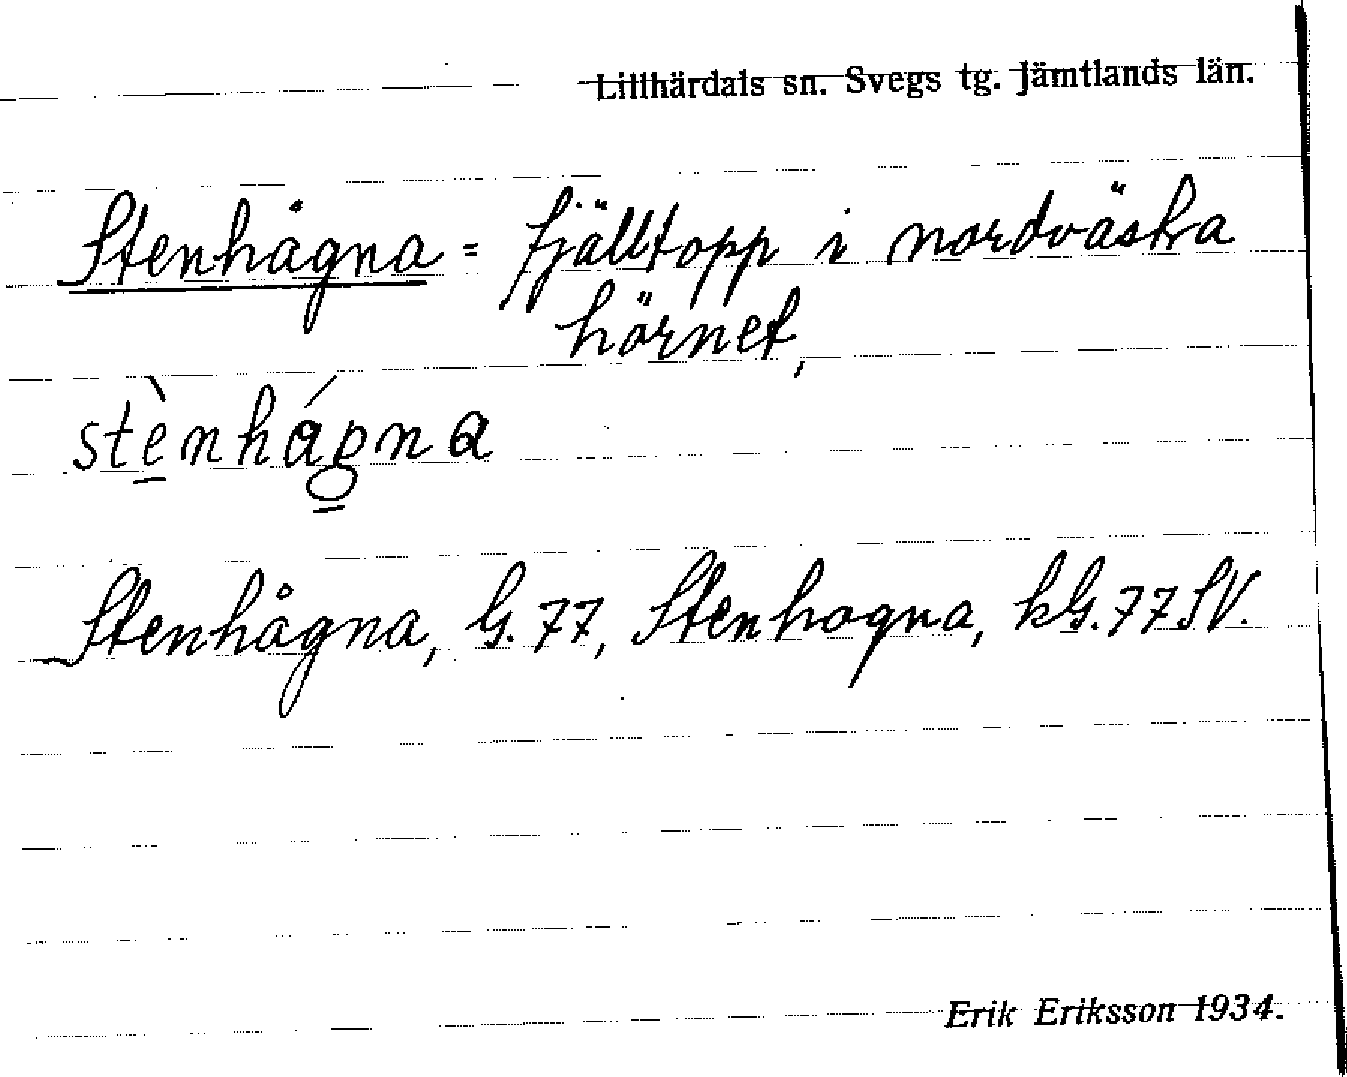 Lillhärdals sn. Svegs tg. Jämtlands län.
Stenhågna = fjälltopp i nordvästra
hörnet,
stènhágna
Stenhågna, G. 77, Stenhogna, kG. 77 SV.
Erik Eriksson 1934.